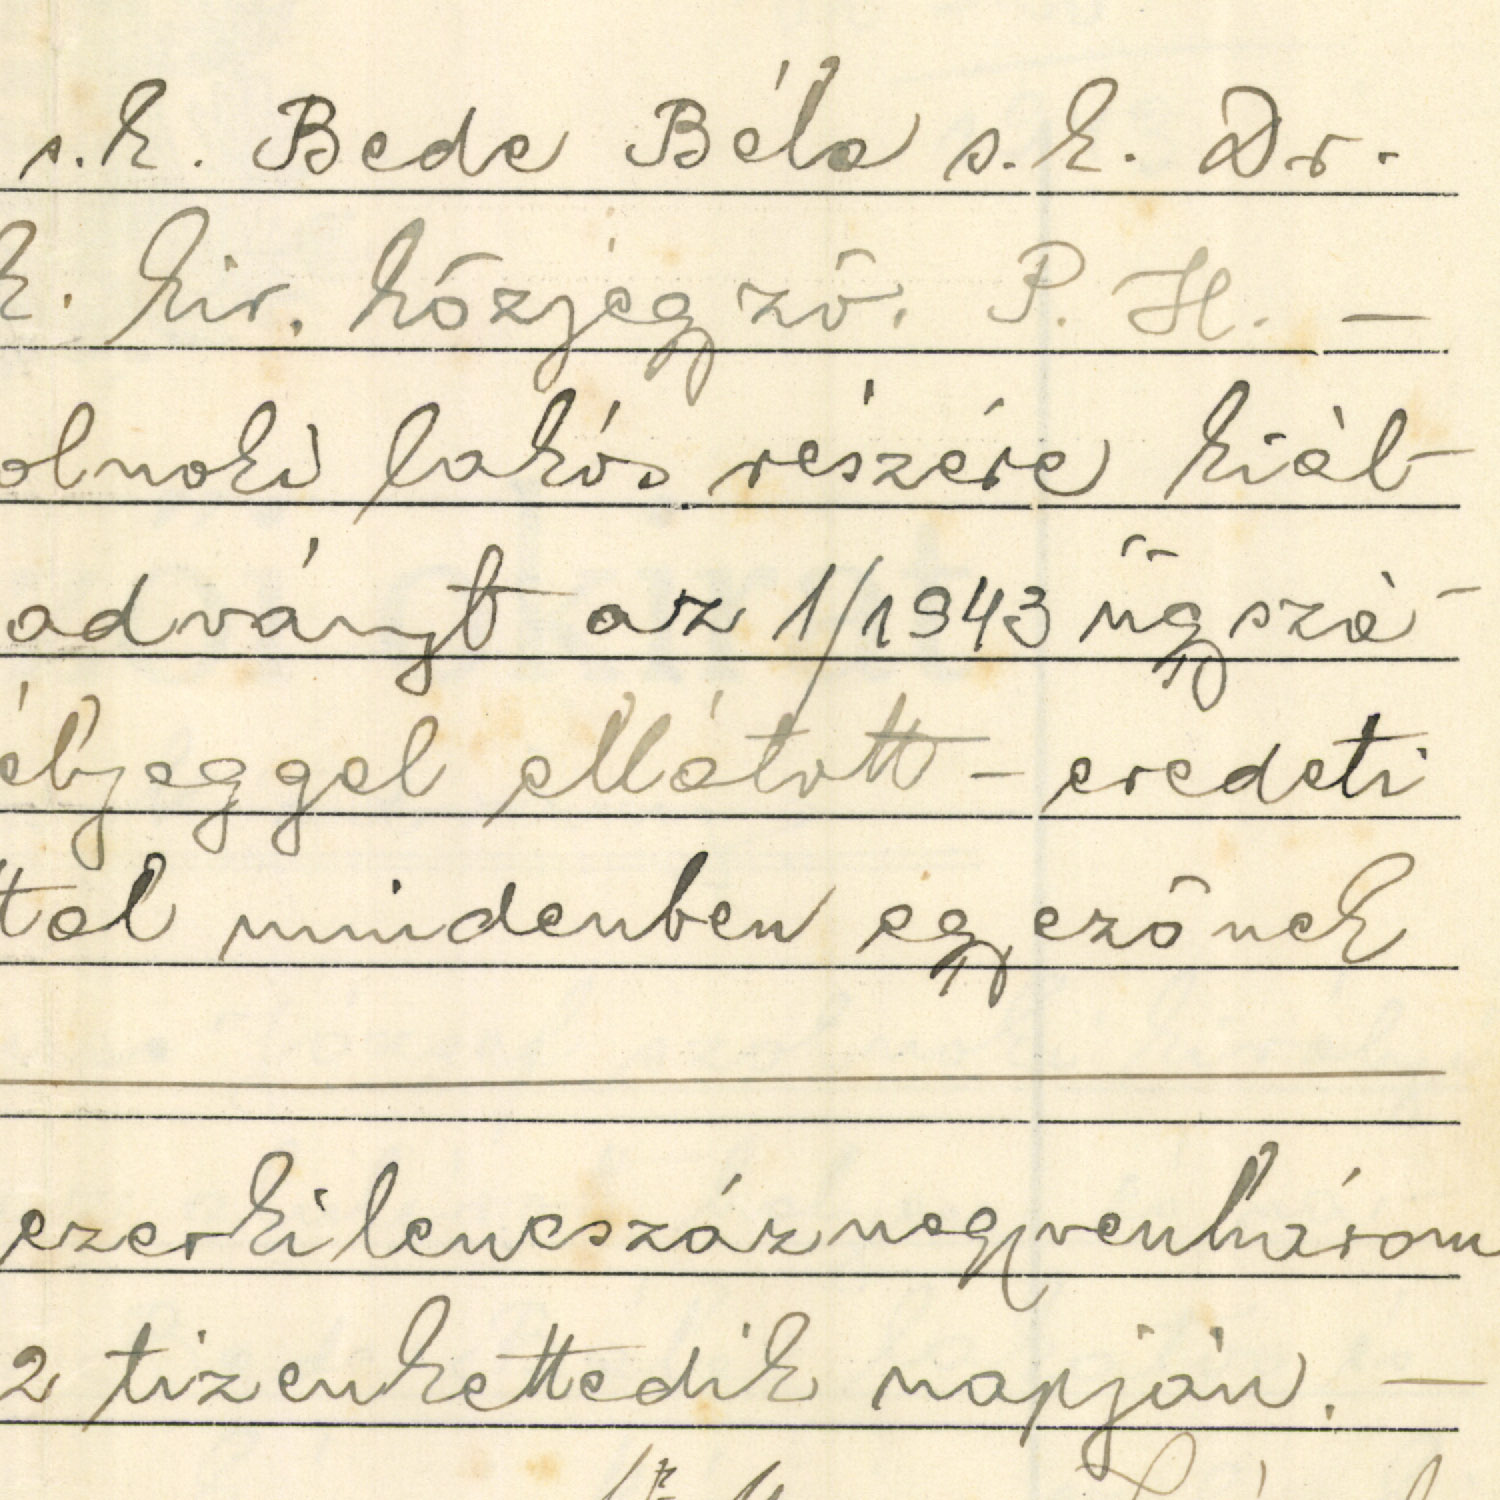 s.k. Bede Béla s.k. Dr.
k. kir. közjegyző. P. H. —
olnoki lakós részére kiál-
adványt az 1/1943 ügyszá-
élyeggel ellátott - eredeti
tal mindenben egyezőnek
ezerkilencszáznegyvenhárom
2 tizenkettedik napján. —